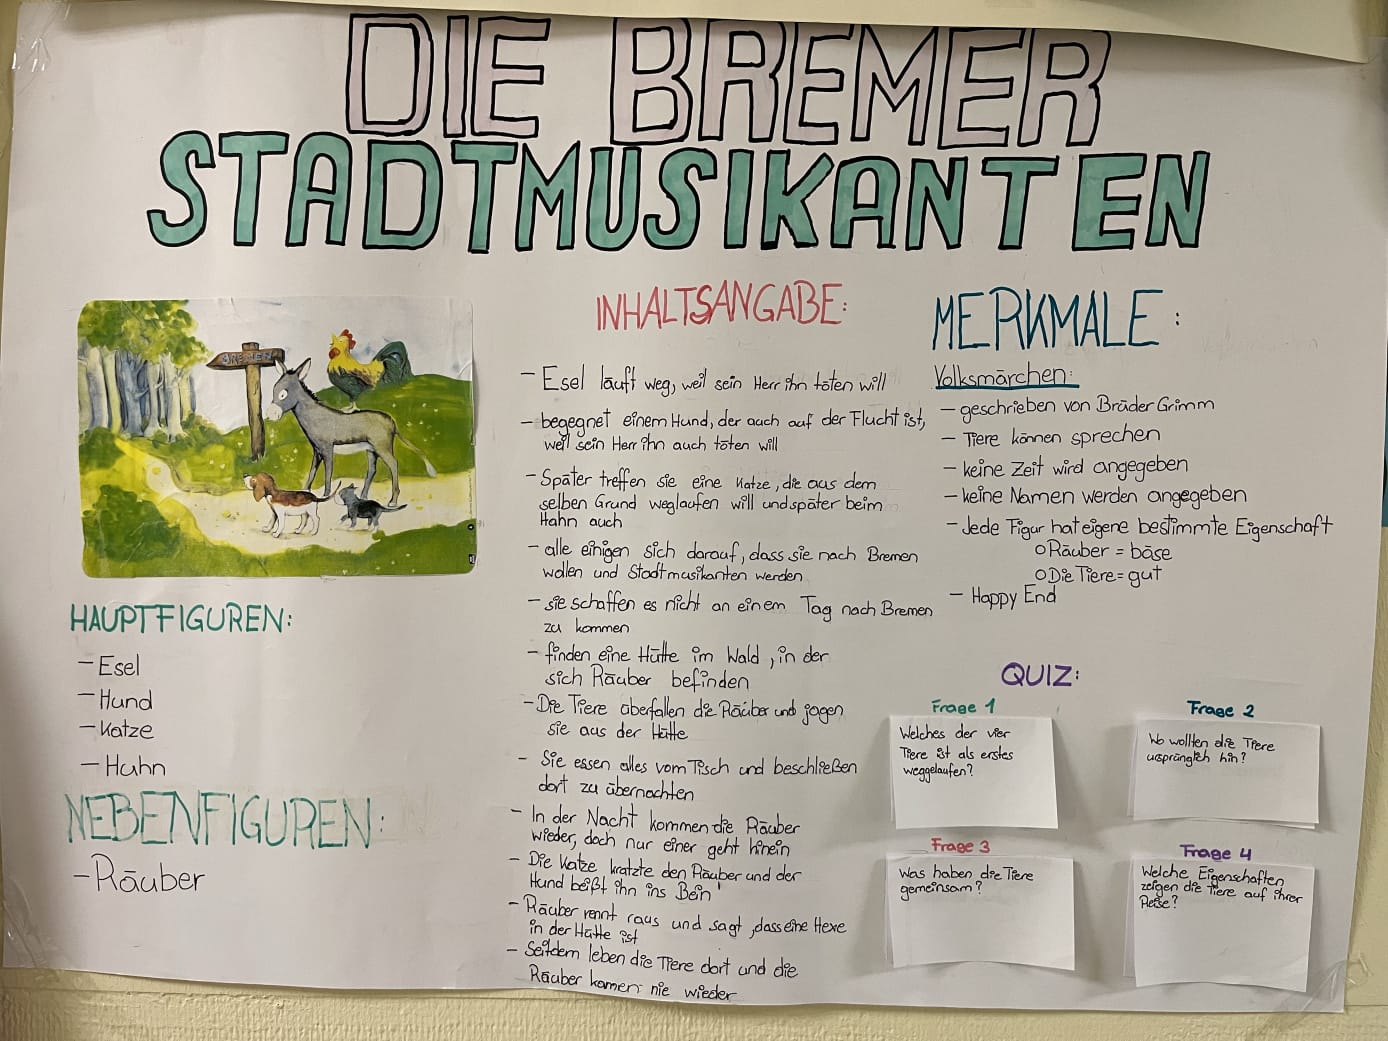 DIE BREMER
STADTMUSIKANTEN
BREMEN
HAUPTFIGUREN:
- Esel
- Hund
- Katze
- Hahn
NEBENFIGUREN:
- Räuber
INHALTSANGABE:
- Esel läuft weg, weil sein Herr ihn töten will
- begegnet einem Hund, der auch auf der Flucht ist,
weil sein Herr ihn auch töten will
- Später treffen sie eine Katze, die aus dem
selben Grund weglaufen will und später beim
Hahn auch
- alle einigen sich darauf, dass sie nach Bremen
wollen und Stadtmusikanten werden
- sie schaffen es nicht an einem Tag nach Bremen
zu kommen
- finden eine Hütte im Wald, in der
sich Räuber befinden
- Die Tiere überfallen die Räuber und jagen
sie aus der Hütte
- Sie essen alles vom Tisch und beschließen
dort zu übernachten
- In der Nacht kommen die Räuber
wieder, doch nur einer geht hinein
- Die Katze kratzte den Räuber und der
Hund beißt ihn ins Bein
- Räuber rennt raus und sagt, dass eine Hexe
in der Hütte ist
- Seitdem leben die Tiere dort und die
Räuber kamen nie wieder
MERKMALE:
Volksmärchen:
- geschrieben von Brüder Grimm
- Tiere können sprechen
- keine Zeit wird angegeben
- keine Namen werden angegeben
- Jede Figur hat eigene bestimmte Eigenschaft
o Räuber = böse
o Die Tiere = gut
- Happy End
QUIZ:
Frage 1
Welches der vier
Tiere ist als erstes
weggelaufen?
Frage 2
Wo wollten die Tiere
ursprünglich hin?
Frage 3
Was haben die Tiere
gemeinsam?
Frage 4
Welche Eigenschaften
zeigen die Tiere auf ihrer
Reise?